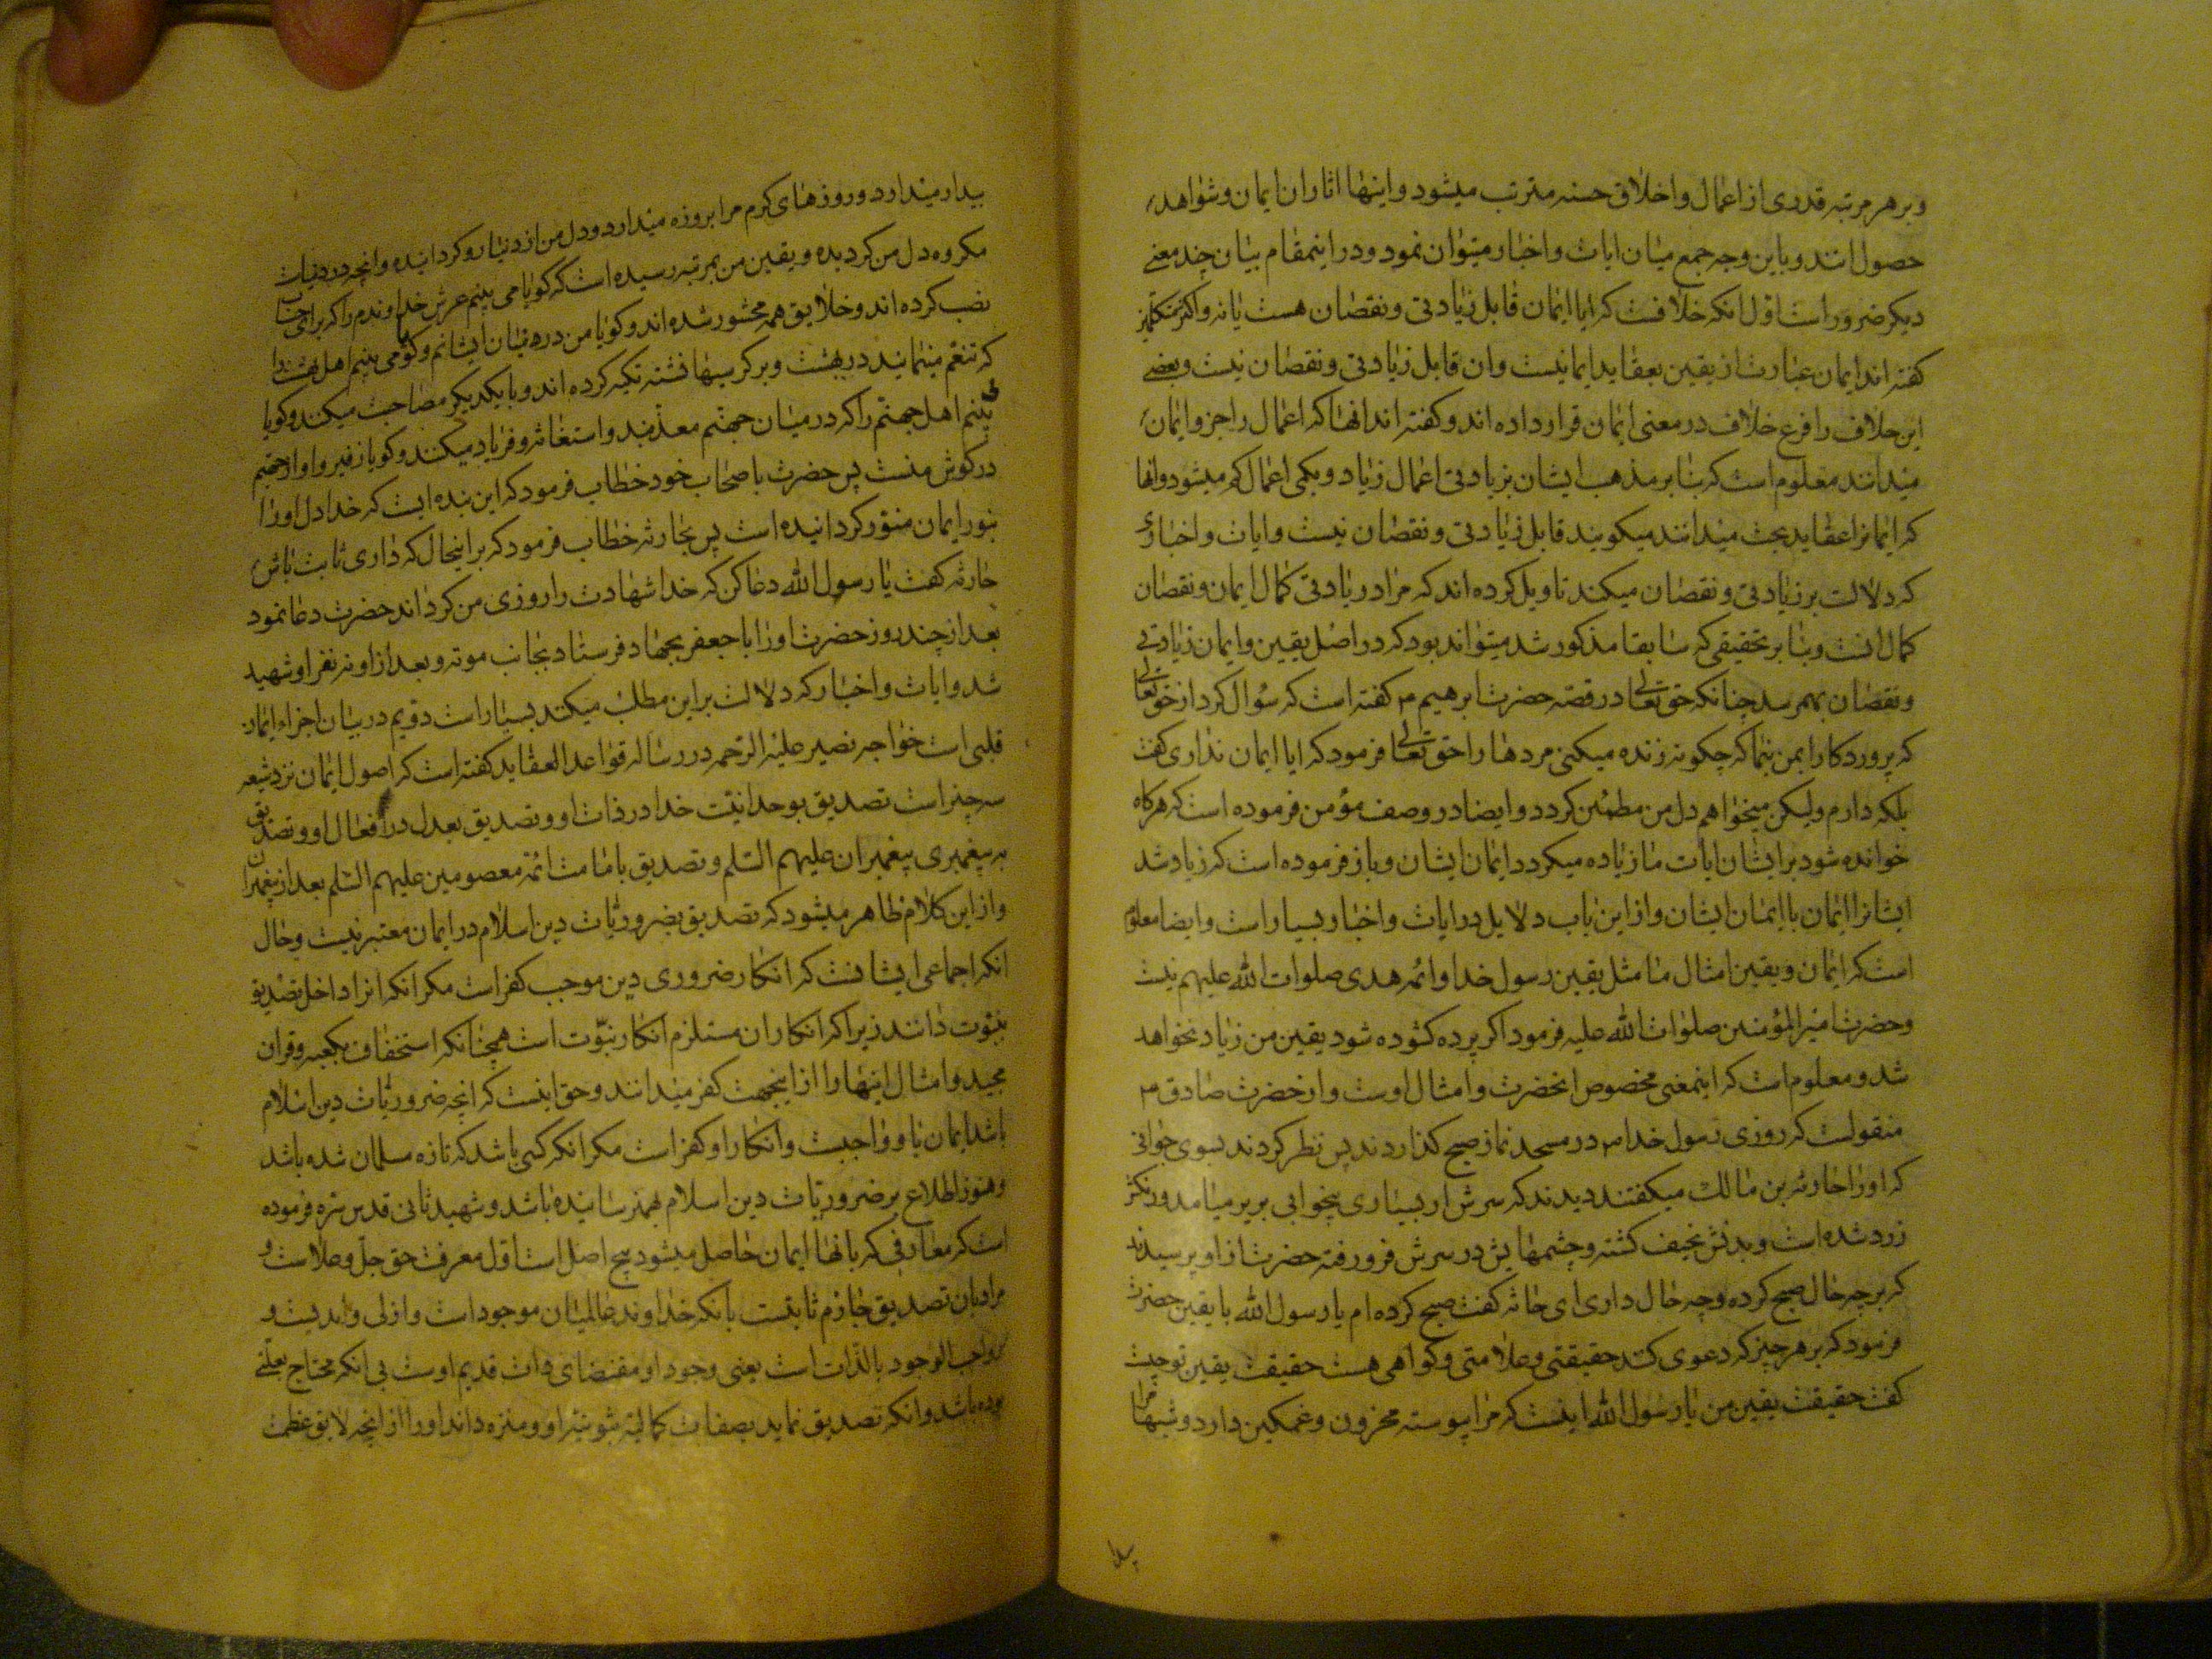 و بر هر مرتبه قدری از اعمال و اخلاق حسنه مترتب میشود و اینها اثار ان ایمان و شواهد
حصول انند و باین وجه جمع میان ایات و اخبار میتوان نمود و در اینمقام بیان چند معنی
دیکر ضرور است اول انکه خلافست که ایا ایمان قابل زیادتی و نقصان هست یا نه و اکثر متکلمین
کفته اند ایمان عبارت از یقین بعقاید ایمانیست و ان قابل زیادتی و نقصان نیست و بعضی
این خلاف را فرع خلاف در معنی ایمان قرار داده اند و کفته اند انها که اعمال را جزو ایمان
میدانند معلوم است که بنابر مذهب ایشان بزیادتی اعمال زیاد و بکمی اعمال کم میشود و انها
که ایمانرا عقاید بحت میدانند میکویند قابل زیادتی و نقصان نیست و ایات و اخباری
که دلالت بر زیادتی و نقصان میکند تاویل کرده اند که مراد زیادتی کمال ایمان و نقصان
کمال انست و بنابر تحقیقی که سابقا مذکور شد میتواند بود که در اصل یقین و ایمان زیادتی
و نقصان بهم رسد چنانکه حق تعالی در قصه حضرت ابرهیم ۴ کفته است که سؤال کرد از حق تعالی
که پروردکارا بمن بنما که چکونه زنده میکنی مردها را حق تعالی فرمود که ایا ایمان نداری کفت
بلکه دارم ولیکن میخواهم دل من مطمئن کردد و ایضا در وصف مؤمن فرموده است که هرکاه
خوانده شود بر ایشان ایات ما زیاده میکردد ایمان ایشان و باز فرموده است که زیاد شد
ایشانرا ایمان با ایمان ایشان و از این باب دلایل در ایات و اخبار بسیار است و ایضا معلوم
است که ایمان و یقین امثال ما مثل یقین رسول خدا و ائمه هدی صلوات الله علیهم نیست
و حضرت امیر المؤمنین صلوات الله علیه فرمود اکر پرده کشوده شود یقین من زیاد نخواهد
شد و معلوم است که اینمعنی مخصوص انحضرت و امثال اوست و از حضرت صادق ۴
منقولست که روزی رسول خدا ۴ در مسجد نماز صبح کذاردند پس نظر کردند بسوی جوانی
که او را حارثه بن مالک میکفتند دیدند که سرش از بسیاری بیخوابی بزیر میامد و رنکش
زرد شده است و بدنش نحیف کشته و چشمهایش در سرش فرو رفته حضرت از او پرسیدند
که بر چه حال صبح کرده و چه حال داری ای حارثه کفت صبح کرده ام یا رسول الله با یقین حضرت
فرمود که بر هر چیز که دعوی کنند حقیقتی و علامتی و کواهی هست حقیقت یقین تو چیست
کفت حقیقت یقین من یا رسول الله اینست که مرا پیوسته محزون و غمکین دارد و شبها مرا
بیدار میدارد و روزهای کرم مرا بروزه میدارد و دل من از دنیا رو کردانیده و انچه در دنیاست
مکروه دل من کردیده و یقین من بمرتبه رسیده است که کویا می بینم عرش خداوندم را که برای حساب
نصب کرده اند و خلایق همه محشور شده اند و کویا من در میان ایشانم و کویا می بینم اهل بهشت را
که تنعم مینمایند در بهشت و بر کرسیها نشسته تکیه کرده اند و با یکدیکر مصاحبت میکنند و کویا
می بینم اهل جهنم را که در میان جهنم معذبند و استغاثه و فریاد میکنند و کویا زفیر و اواز جهنم
در کوش منست پس حضرت باصحاب خود خطاب فرمود که این بنده ایست که خدا دل او را
بنور ایمان منور کردانیده است پس بحارثه خطاب فرمود که بر اینحال که داری ثابت باش
حارثه کفت یا رسول الله دعا کن که خدا شهادت را روزی من کرداند حضرت دعا نمود
بعد از چند روز حضرت او را با جعفر بجهاد فرستاد بجانب موته و بعد از نه نفر او شهید
شد و ایات و اخبار که دلالت بر این مطلب میکند بسیار است دویم در بیان اجزاء ایمان
قلبی است خواجه نصیر علیه الرحمه در رساله قواعد العقاید کفته است که اصول ایمان نزد شیعه
سه چیز است تصدیق بوحدانیت خدا در ذات او و تصدیق بعدل در افعال او و تصدیق
به پیغمبری پیغمبران علیهم السلم و تصدیق بامامت ائمه معصومین علیهم السلم بعد از پیغمبران
و از این کلام ظاهر میشود که تصدیق بضروریات دین اسلام در ایمان معتبر نیست و حال
انکه اجماعی ایشانست که انکار ضروری دین موجب کفر است مکر انکه انرا داخل تصدیق
بنبوت دانند زیرا که انکار ان مستلزم انکار نبوت است همچنانکه استخفاف بکعبه و قران
مجید و امثال اینها را از اینجهت کفر میدانند و حق اینست که انچه ضروریات دین اسلام
باشد ایمان باو واجبست و انکار او کفر است مکر انکه کسی باشد که تازه مسلمان شده باشد
و هنوز اطلاع بر ضروریات دین اسلام بهم نرسانیده باشد و شهید ثانی قدس سره فرموده
است که معارفی که بانها ایمان حاصل میشود پنج اصل است اول معرفت حق جل و علاست و
مراد بان تصدیق جازم ثابتست بانکه خداوند عالمیان موجود است و ازلی و ابدیست و
واجب الوجود بالذات است یعنی وجود او مقتضای ذات قدیم اوست بی انکه محتاج بعلتی
بوده باشد و انکه تصدیق نماید بصفات کمالیه ثبوتیه او و منزه داند او را از انچه لایق عظمت